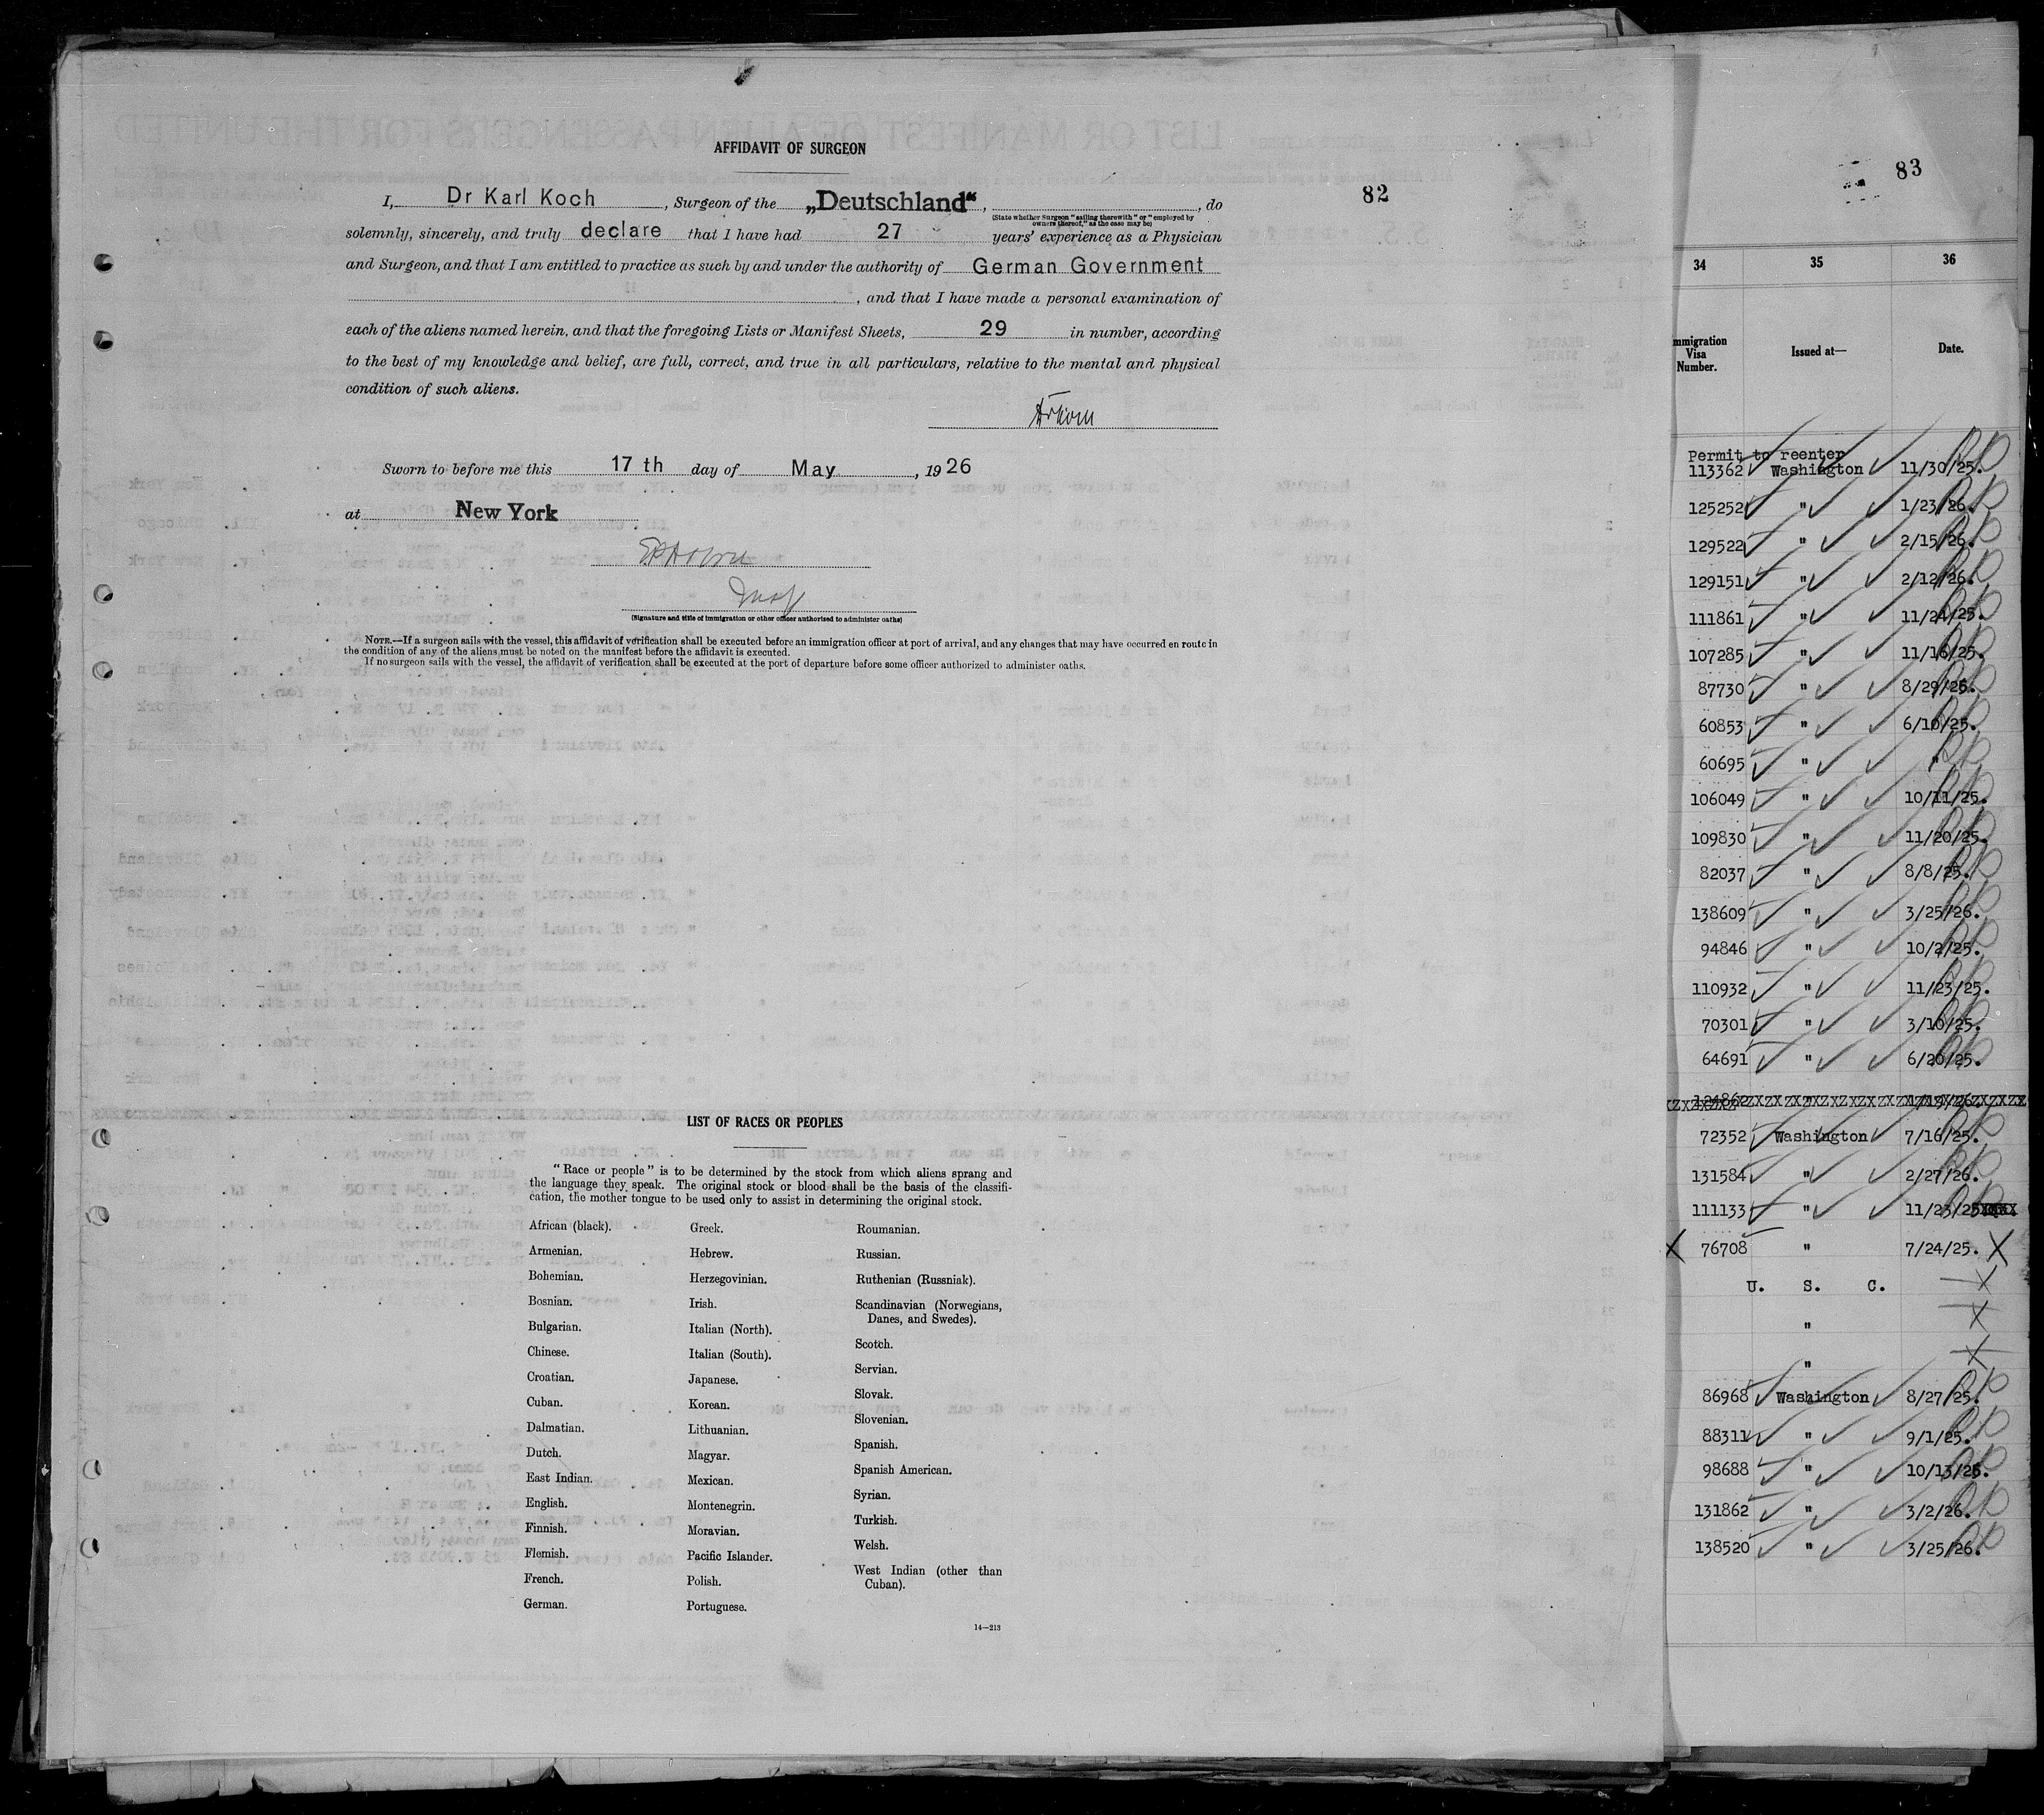 AFFIDAVIT OF SURGEON
82
83
I, Dr Karl Koch, Surgeon of the „Deutschland“, , do
(State whether Surgeon "sailing therewith" or "employed by
owners thereof," as the case may be)
solemnly, sincerely, and truly declare that I have had 27 years' experience as a Physician
and Surgeon, and that I am entitled to practice as such by and under the authority of German Government
, and that I have made a personal examination of
each of the aliens named herein, and that the foregoing Lists or Manifest Sheets, 29 in number, according
to the best of my knowledge and belief, are full, correct, and true in all particulars, relative to the mental and physical
condition of such aliens.
Sworn to before me this 17 th day of May, 1926
at New York
Insp
(Signature and title of immigration or other officer authorized to administer oaths)
NOTE.—If a surgeon sails with the vessel, this affidavit of verification shall be executed before an immigration officer at port of arrival, and any changes that may have occurred en route in
the condition of any of the aliens must be noted on the manifest before the affidavit is executed.
If no surgeon sails with the vessel, the affidavit of verification shall be executed at the port of departure before some officer authorized to administer oaths.
LIST OF RACES OR PEOPLES
"Race or people" is to be determined by the stock from which aliens sprang and
the language they speak. The original stock or blood shall be the basis of the classifi-
cation, the mother tongue to be used only to assist in determining the original stock.
African (black).
Armenian.
Bohemian.
Bosnian.
Bulgarian.
Chinese.
Croatian.
Cuban.
Dalmatian.
Dutch.
East Indian.
English.
Finnish.
Flemish.
French.
German.
Greek.
Hebrew.
Herzegovinian.
Irish.
Italian (North).
Italian (South).
Japanese.
Korean.
Lithuanian.
Magyar.
Mexican.
Montenegrin.
Moravian.
Pacific Islander.
Polish.
Portuguese.
Roumanian.
Russian.
Ruthenian (Russniak).
Scandinavian (Norwegians,
Danes, and Swedes).
Scotch.
Servian.
Slovak.
Slovenian.
Spanish.
Spanish American.
Syrian.
Turkish.
Welsh.
West Indian (other than
Cuban).
14—213
34 35 36
mmigration
Visa
Number.
Issued at—
Date.
Permit to reenter
113362 Washington 11/30/25.
125252 " 1/23/26.
129522 " 2/15/26.
129151 " 2/12/26.
111861 " 11/24/25.
107285 " 11/16/25.
87730 " 8/29/25.
60853 " 6/10/25.
60695 " "
106049 " 10/11/25.
109830 " 11/20/25.
82037 " 8/8/25.
138609 " 3/25/26.
94846 " 10/2/25.
110932 " 11/23/25.
70301 " 3/10/25.
64691 " 6/20/25.
72352 Washington 7/16/25.
131584 " 2/27/26.
111133 " 11/23/25
X 76708 " 7/24/25. X
U. S. C. X
" X
" X
86968 Washington 8/27/25.
88311 " 9/1/25.
98688 " 10/13/25.
131862 " 3/2/26.
138520 " 3/25/26.